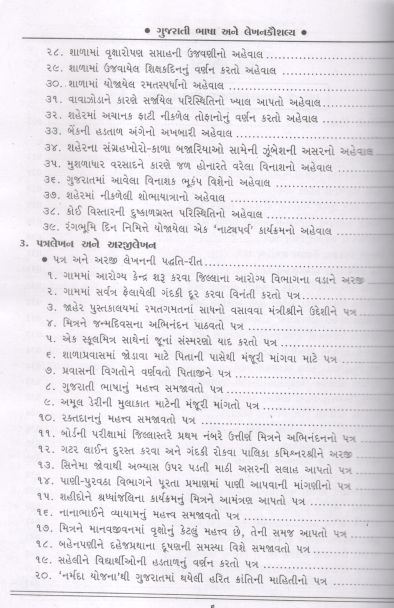 • ગુજરાતી ભાષા અને લેખનકૌશલ્ય •
૨૮. શાળામાં વૃક્ષારોપણ સપ્તાહની ઉજવણીનો અહેવાલ
૨૯. શાળામાં ઉજવાયેલ શિક્ષકદિનનું વર્ણન કરતો અહેવાલ
૩૦. શાળામાં યોજાયેલ રમતસ્પર્ધાનો અહેવાલ
૩૧. વાવાઝોડાને કારણે સર્જાયેલ પરિસ્થિતિનો ખ્યાલ આપતો અહેવાલ
૩૨. શહેરમાં અચાનક ફાટી નીકળેલ તોફાનોનું વર્ણન કરતો અહેવાલ
૩૩. બેંકની હડતાળ અંગેનો અખબારી અહેવાલ
૩૪. શહેરના સંગ્રહખોરો-કાળા બજારિયાઓ સામેની ઝુંબેશની અસરનો અહેવાલ
૩૫. મુશળાધાર વરસાદને કારણે જળ હોનારતે વરેલા વિનાશનો અહેવાલ
૩૬. ગુજરાતમાં આવેલા વિનાશક ભૂકંપ વિશેનો અહેવાલ
૩૭. શહેરમાં નીકળેલી શોભાયાત્રાનો અહેવાલ
૩૮. કોઈ વિસ્તારની દુષ્કાળગ્રસ્ત પરિસ્થિતિનો અહેવાલ
૩૯. રંગભૂમિ દિન નિમિત્તે યોજાયેલા એક 'નાટ્યપર્વ' કાર્યક્રમનો અહેવાલ
૩. પત્રલેખન અને અરજીલેખન
• પત્ર અને અરજી લેખનની પદ્ધતિ-રીત
૧. ગામમાં આરોગ્ય કેન્દ્ર શરૂ કરવા જિલ્લાના આરોગ્ય વિભાગના વડાને અરજી
૨. ગામમાં સર્વત્ર ફેલાયેલી ગંદકી દૂર કરવા વિનંતી કરતો પત્ર
૩. જાહેર પુસ્તકાલયમાં રમતગમતનાં સાધનો વસાવવા મંત્રીશ્રીને ઉદ્દેશીને પત્ર
૪. મિત્રને જન્મદિવસના અભિનંદન પાઠવતો પત્ર
૫. એક સ્કૂલમિત્ર સાથેનાં જૂનાં સંસ્મરણો યાદ કરતો પત્ર
૬. શાળાપ્રવાસમાં જોડાવા માટે પિતાની પાસેથી મંજૂરી માંગવા માટે પત્ર
૭. પ્રવાસની વિગતોને વર્ણવતો પિતાજીને પત્ર
૮. ગુજરાતી ભાષાનું મહત્ત્વ સમજાવતો પત્ર
૯. અમૂલ ડેરીની મુલાકાત માટેની મંજૂરી માંગતો પત્ર
૧૦. રક્તદાનનું મહત્ત્વ સમજાવતો પત્ર
૧૧. બોર્ડની પરીક્ષામાં જિલ્લાસ્તરે પ્રથમ નંબરે ઉત્તીર્ણ મિત્રને અભિનંદનનો પત્ર
૧૨. ગટર લાઈન દુરસ્ત કરવા અને ગંદકી રોકવા પાલિકા કમિશ્નરશ્રીને અરજી
૧૩. સિનેમા જોવાથી અભ્યાસ ઉપર પડતી માઠી અસરની સલાહ આપતો પત્ર
૧૪. પાણી-પુરવઠા વિભાગને પૂરતા પ્રમાણમાં પાણી આપવાની માંગણીનો પત્ર
૧૫. શહીદોને શ્રધ્ધાંજલિના કાર્યક્રમનું મિત્રને આમંત્રણ આપતો પત્ર
૧૬. નાનાભાઈને વ્યાયામનું મહત્ત્વ સમજાવતો પત્ર
૧૭. મિત્રને માનવજીવનમાં વૃક્ષોનું કેટલું મહત્ત્વ છે, તેની સમજ આપતો પત્ર
૧૮. બહેનપણીને દહેજપ્રથાના દૂષણની સમસ્યા વિશે સમજાવતો પત્ર
૧૯. સહેલીને વિદ્યાર્થીઓની હડતાળનું વર્ણન કરતો પત્ર
૨૦. 'નર્મદા યોજના'થી ગુજરાતમાં થયેલી હરિત ક્રાંતિની માહિતીનો પત્ર